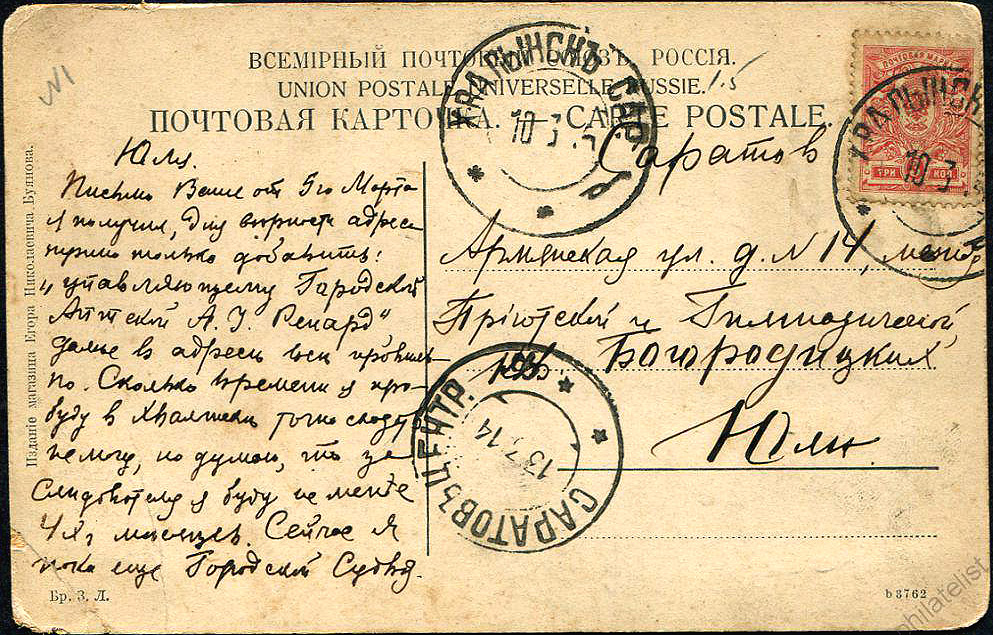 ВСЕМІРНЫЙ ПОЧТОВЫЙ СОЮЗЪ. РОССІЯ.
UNION POSTALE UNIVERSELLE. RUSSIE.
ПОЧТОВАЯ КАРТОЧКА. — CARTE POSTALE.
N1
15
ХВАЛЫНСКЪ САР.
10 3
ПОЧТОВАЯ МАРКА
ТРИ КОП.
ХВАЛЫНСК
10 3
Юля.
Письмо Ваше от 5го Марта
я получил, Для верности адреса
нужно только добавить:
"управляющему Городской
Аптекой А. И. Ренард"
далее в адресе все правиль-
но. Сколько времени я про-
буду в Хвалынске точно сказать
не могу, но думаю, что за
Следователя я буду не менее
4х месяцев. Сейчас я
пока еще Городской Судья.
Саратов
Армянская ул. д. N 14, между
Пріютской и Гимназической
Богородицких
Юлии.
САРАТОВЪ ЦЕНТР.
13 3 14
Изданіе магазина Егора Николаевича Буянова.
Бр. З. Л.
b 3762
philatelist